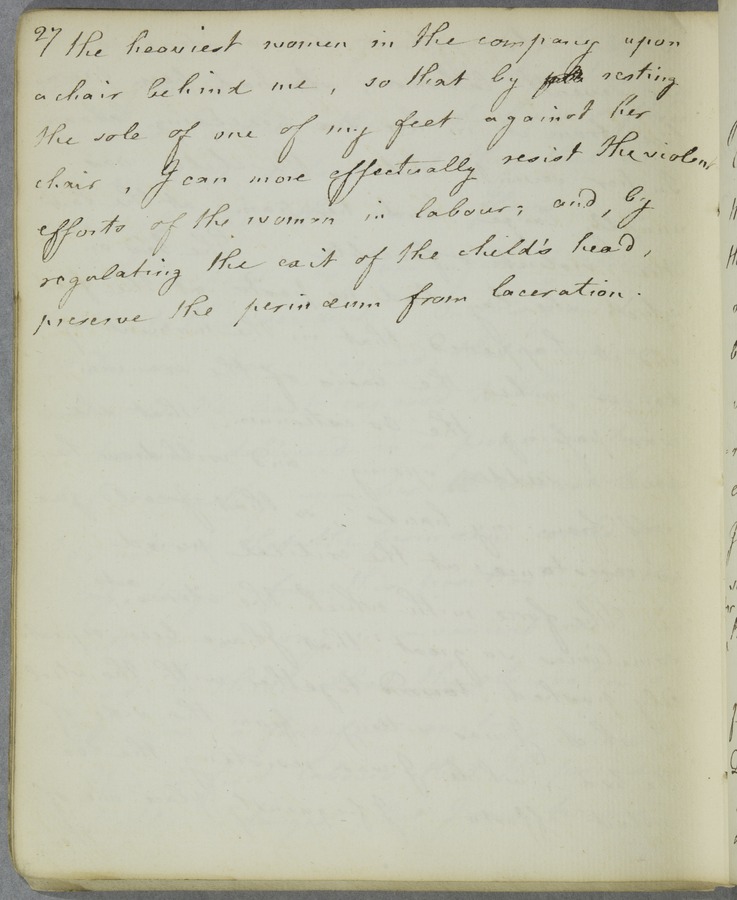 27 the heaviest women in the company upon
a chair behind me, so that by resting
the sole of one of my feet against her
chair, I can more effectually resist the violent
efforts of the women in labour; and, by
regulating the exit of the child's head,
preserve the perinæum from laceration.